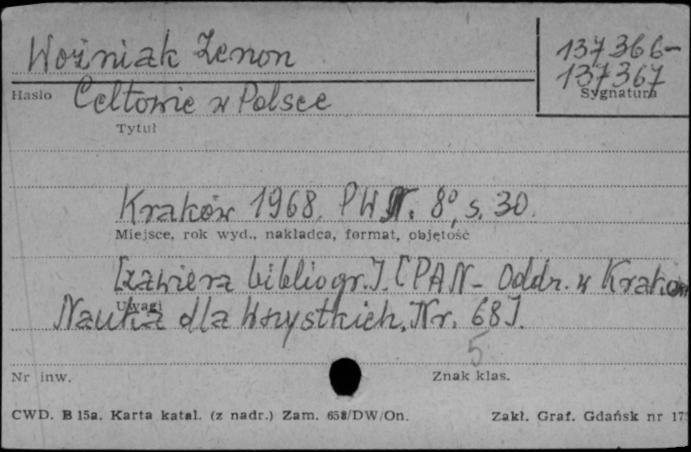 Woźniak Zenon
137366-
137367
Hasło
Sygnatura
Celtowie w Polsce
Tytuł
Kraków 1968. PWN. 8°, s. 30.
Miejsce, rok wyd., nakładca, format, objętość
[zawiera bibliogr.]. [PAN - Oddz. w Krakow
Uwagi
Nauka dla Wszystkich. Nr. 68].
5
Nr inw.
Znak klas.
CWD. B 15a. Karta katal. (z nadr.) Zam. 658/DW/On.
Zakł. Graf. Gdańsk nr 17